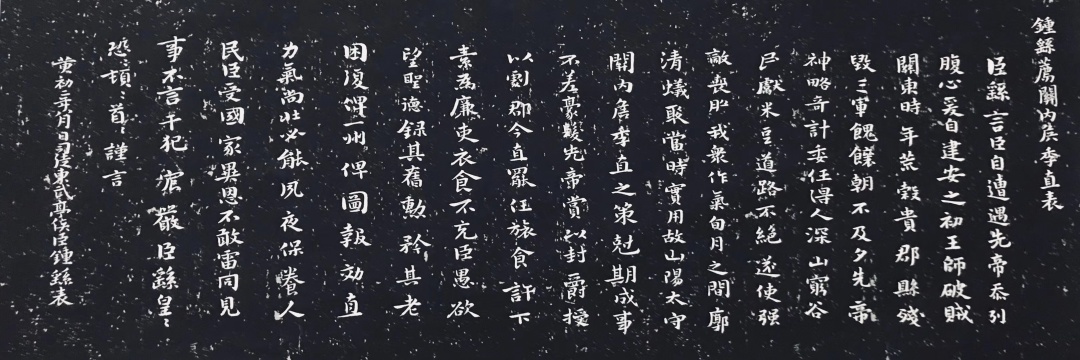 鍾繇薦關內侯季直表
臣繇言臣自遭遇先帝忝列
腹心爰自建安之初王師破賊
關東時年荒穀貴郡縣殘
毀三軍餽饟朝不及夕先帝
神略奇計委任得人深山窮谷
民獻米豆道路不絕遂使强
敵喪膽我衆作氣旬月之間廓
清蟻聚當時實用故山陽太守
關內侯季直之策剋期成事
不差豪髮先帝賞以封爵授
以劇郡今直罷任旅食許下
素爲廉吏衣食不充臣愚欲
望聖德錄其舊勳矜其老
困復俾一州俾圖報効直
力氣尚壯必能夙夜保養人
民臣受國家異恩不敢雷同見
事不言干犯宸嚴臣繇皇〻
恐頓〻首〻謹言
黃初二年八月日司徒東武亭侯臣鍾繇表